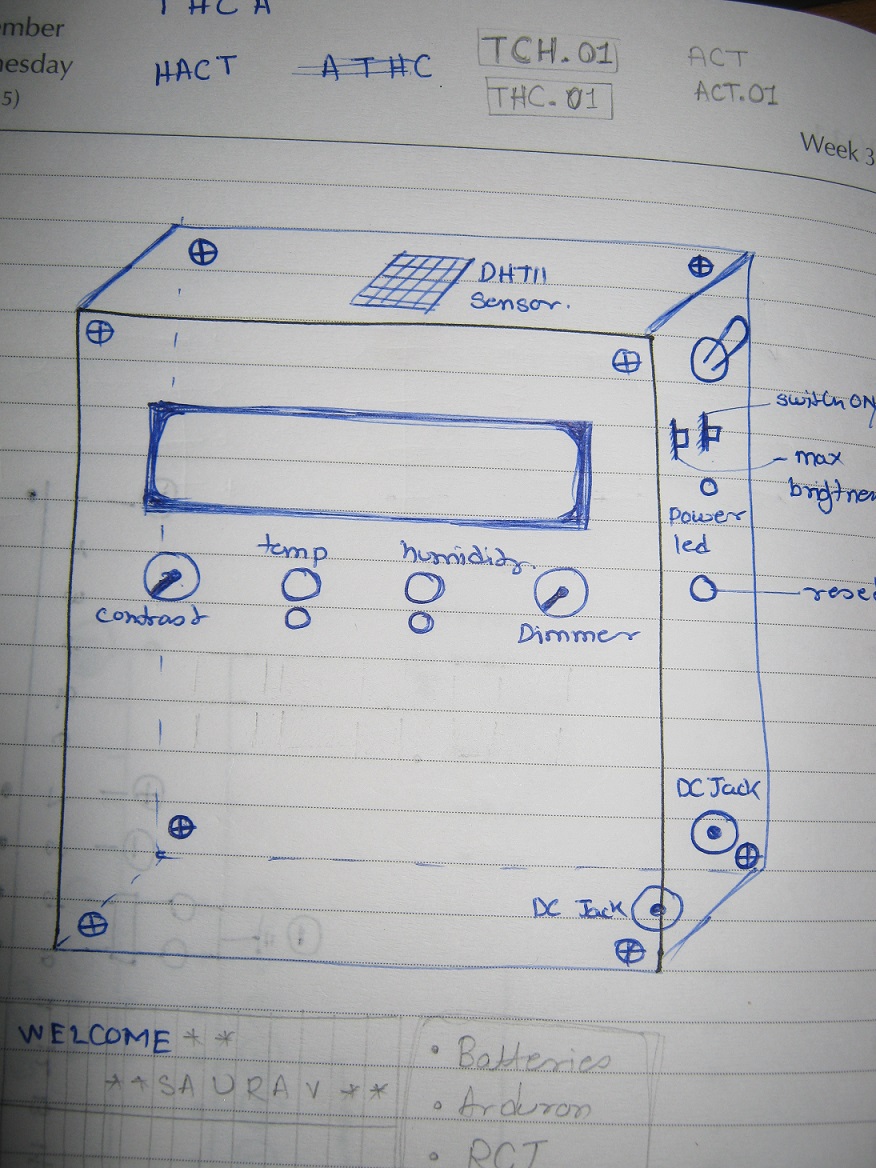 THCA
ember
nesday
5)
HACT ATHC TCH.01 ACT
THC.01 ACT.01
Week 3
DHT11
Sensor.
switch ON
max
brigtnes
Power
led
temp humidity.
Contrast Dimmer
rese
DC Jack
DC Jack
WELCOME **
**SAURAV**
• Batteries
• Arduron
• RCT